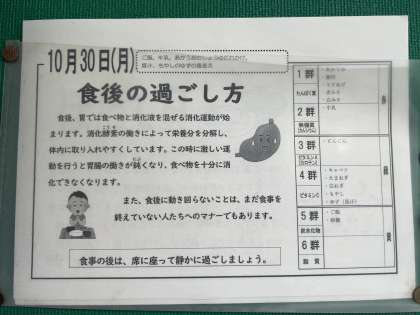 10月30日(月)
ご飯、牛乳、
豚汁、もやしのゆず
食後の過ごし方
食後、胃では食べ物と消化液を混ぜる消化運動が始
まります。消化酵素の働きによって栄養分を分解し、
体内に取り入れやすくしています。この時に激しい運
動を行うと胃腸の働きが鈍くなり、食べ物を十分に消
化できなくなります。
また、食後に動き回らないことは、まだ食事を
終えていない人たちへのマナーでもあります。
食事の後は、席に座って静かに過ごしましょう。
1群
たんぱく質
2群
無機質
(カルシウム)
・牛乳
3群
ビタミンA
(カロテン)
・にんじん
4群
ビタミンC
・キャベツ
・たまねぎ
・もやし
5群
炭水化物
・ご飯
・砂糖
6群
脂質